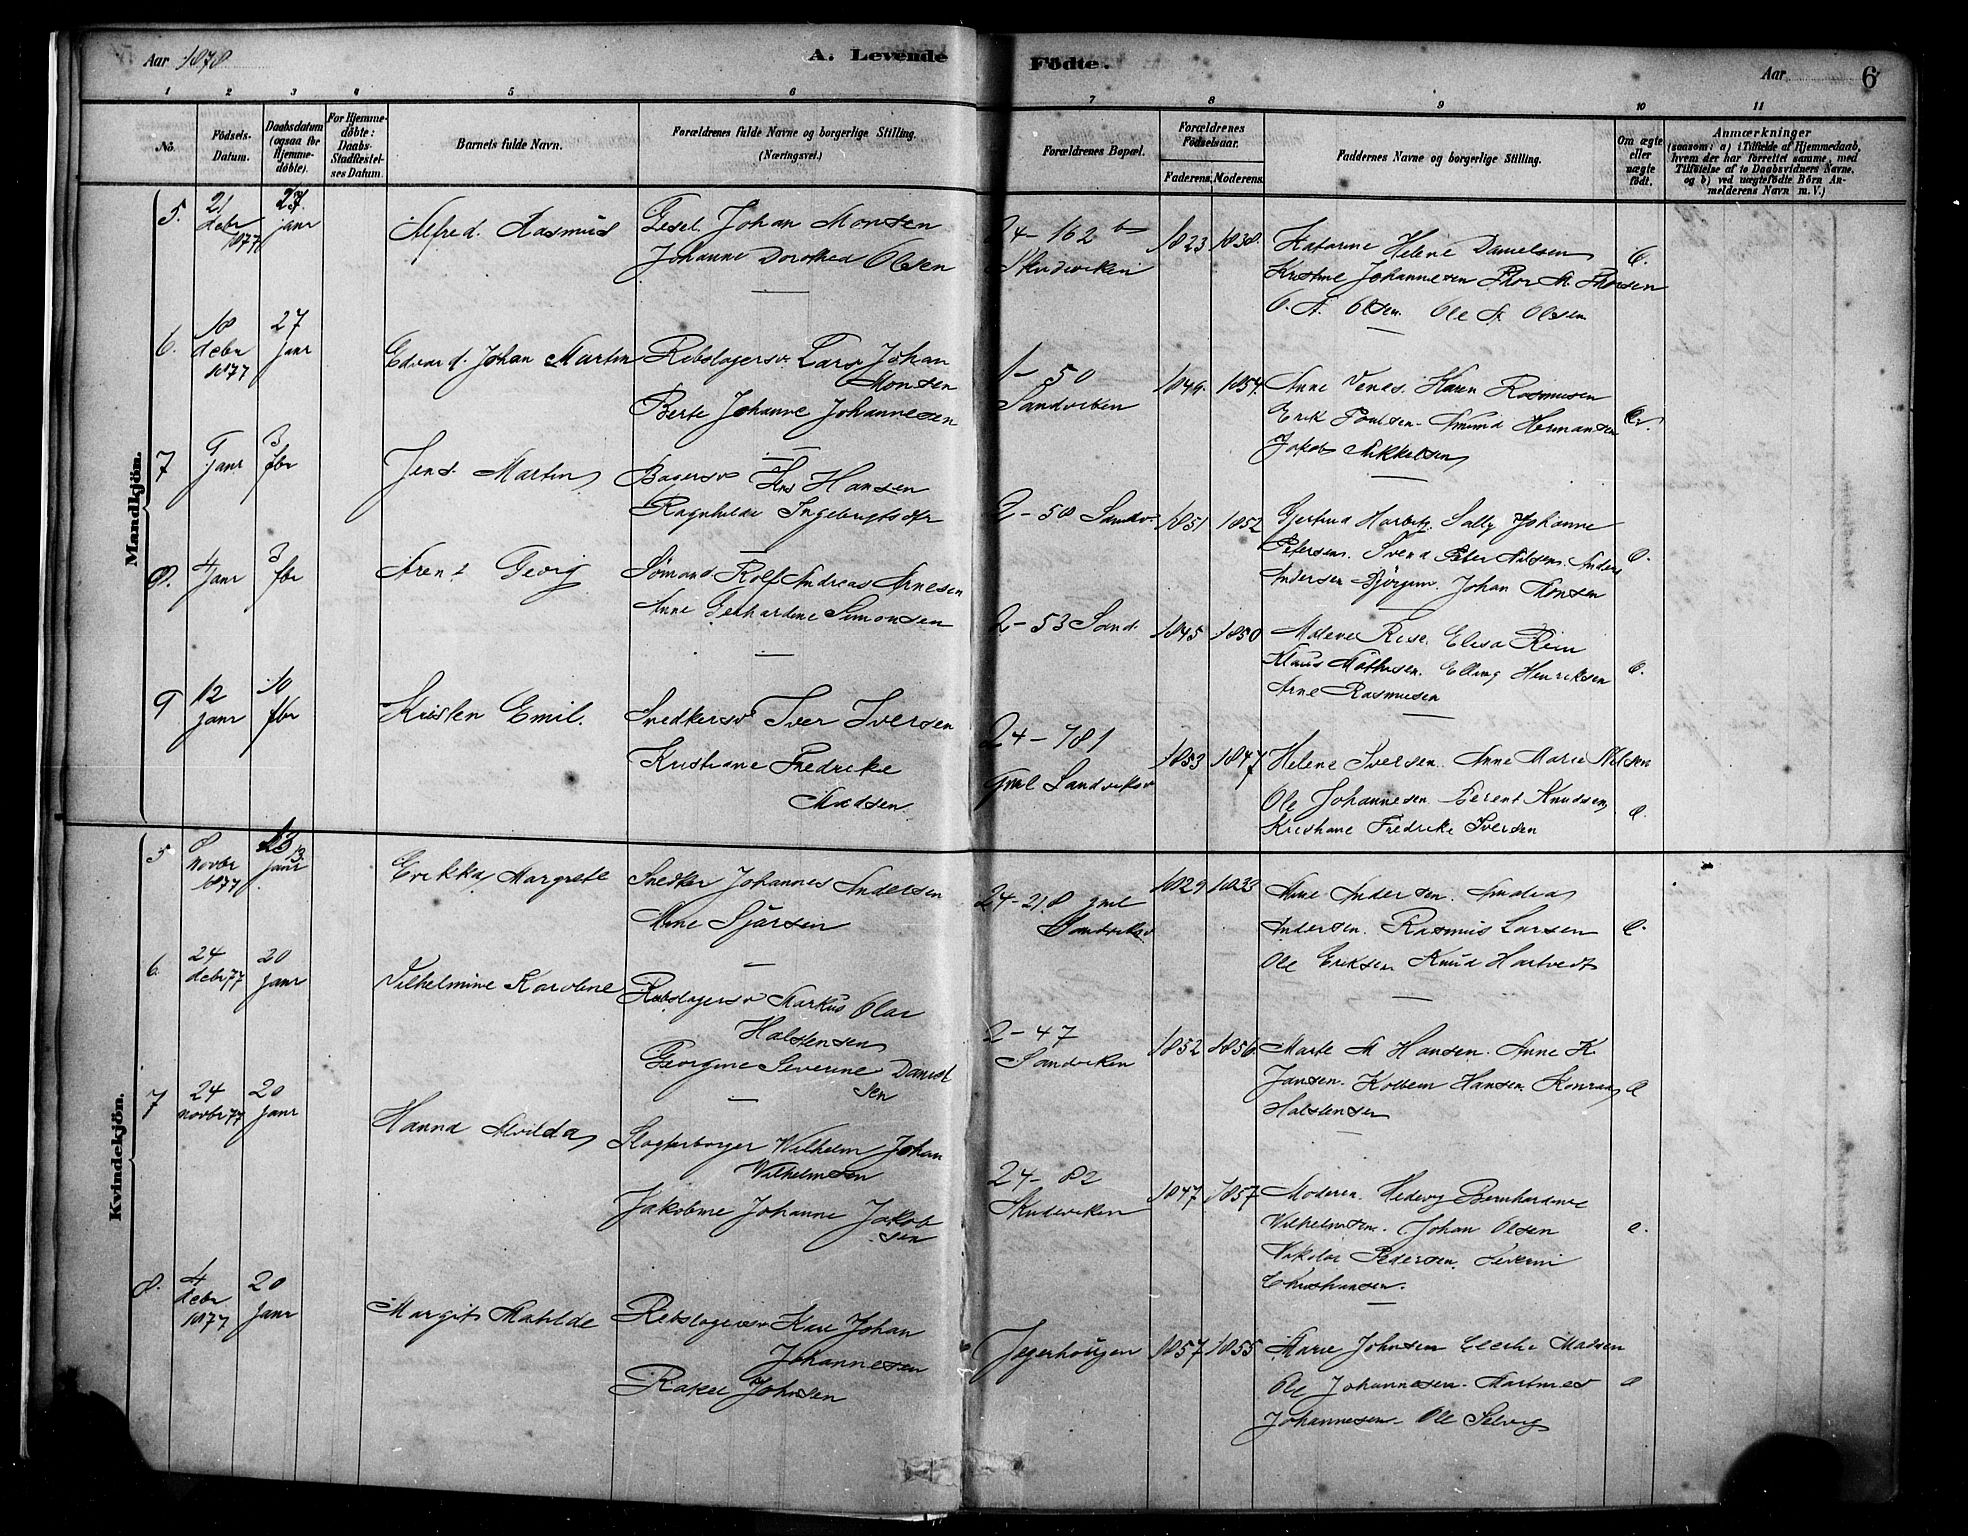 Aar 1878
A. Levende
Födte.
Aar
6
1 2 3 4 5 6 7 8 9 10 11
No.
Födsels-
Datum.
Daabsdatum
(ogsaa for
Hjemme-
döbte).
For Hjemme-
döbte:
Daabs-
Stadfæstel-
ses Datum.
Barnets fulde Navn.
Forældrenes fulde Navne og borgerlige Stilling.
(Næringsvei.)
Forældrenes Bopæl.
Forældrenes
Födselsaar.
Faderens.
Moderens.
Faddernes Navne og borgerlige Stilling.
Om ægte
eller
uægte
födt.
Anmærkninger
(saasom: a) i Tilfælde af Hjemmedaab,
hvem der har forrettet samme, med
Tilföielse af to Daabsvidners Navne,
og b) ved uægtefödte Börn An-
melderens Navn m. V.)
Mandkjön.
5.
21
debr
1877
27
janr
Alfred Rasmus
Johan Monsen
Johanne Dorothea Olsen
24-162
Skudeviken
1823
1838
Katarine Helene Danielsen
Kristine Johannesen Thor M. Thorsen
O. A. Olsen Ole A. Olsen
e.
6.
18
debr
1877
27
janr
Edvard Johan Martin
Rebslagersv Lars Johan
Monsen
Berte Johanne Johannesen
1-50
Sandviken
1854
Anne Karen Rasmusen
Erik Poulsen. Amund Hermansen
Jakob Mikkelsen
7
9
janr
3
fbr
Jens Martin
Bagersv Hansen
Ragnhilde Ingebrigtsdtr
2-58 Sandv.
1851
1852
Gjertrud Sally Johanne
Petersen. Svend Peter Nilsen. Anders
Andersen Johan
e.
8.
4
janr
3
fbr
Arent Georg
Sømand Rolf Andreas Arnesen
Anne Gerhardine Simonsen
2-53 Sand.
1845
1850
Elisa
Klaus Mathisen. Elling Henriksen
Arne Rasmusen
e.
9
12
janr
10
fbr
Kristen Emil.
Snedkersv Iver Iversen
Kristiane Fredrike
Madsen
24-181
gml Sandviksv
1853
1847
Helene Iversen. Anne Marie Nilsen
Ole Johannesen. Berent Knudsen
Kristiane Fredrike Iversen
e.
Kvindekjön.
5
8
novbr
1877
13
janr
Erikka Margrete
Snedker Johannes Andersen
Anne Sjursen
24-218 gml
Sandviksv
1829
1833
Andersen. Andrea
Andersen. Rasmus Larsen
Ole Eriksen Knud Hartvedt
e.
6.
24
debr 77
20
janr
Vilhelmine Karoline
Rebslagersv Markus Olai
Halstensen
Georgine Severine Daniel
sen
2-47
Sandviken
1852
1856
Marte M Hansen. Anne K.
Jansen. Kolbein Hansen. Konrad
Halstensen
e
7
24
novbr 77
20
janr
Hanna Alvilda
Slagterborger Vilhelm Johan
Vilhelmsen
Jakobine Johanne Jakob
sen
24-82
Skudeviken
1847
1857
Moderen. Hedevig Bernhardine
Vilhelmsen. Johan Olsen
Nikolai Pedersen. Severin
Christiansen.
e.
8.
4
debr
1877
20
janr
Margit Matilde
Rebslagersv Karl Johan
Johannesen
Rakel Johnsen
Jegerhougen
1857
1855
Marie Johnsen Cecilie Madsen
Ole Johannesen. Martines
Johannesen. Ole Selvig
e